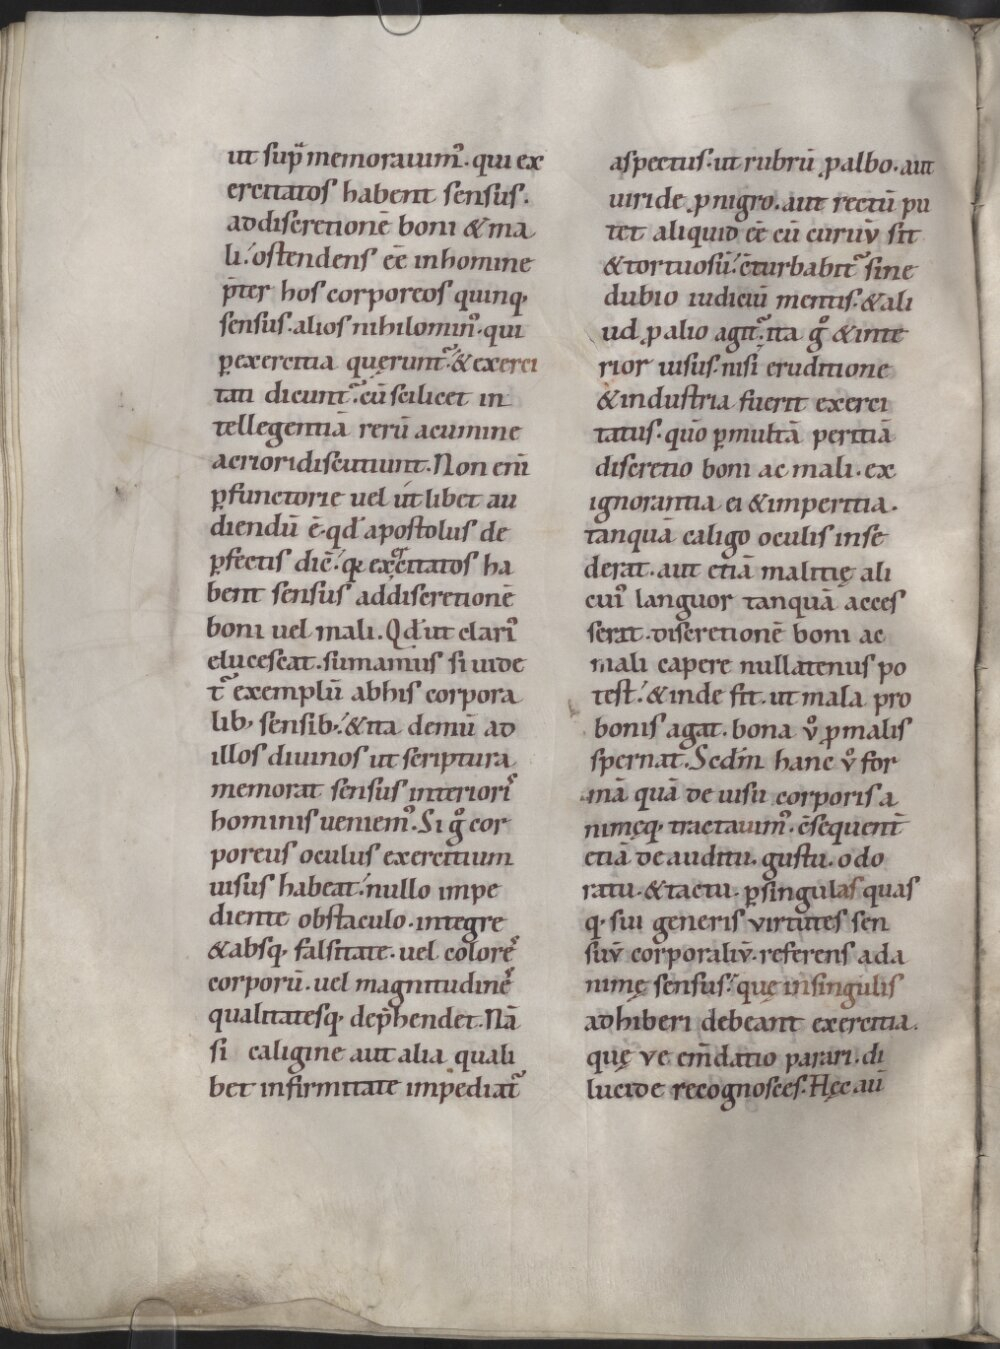 ut sup̃ memorauimꝰ. qui ex
ercitatos habent sensus.
ad discretionē boni & ma
li. ostendens eē in homine
p̄ter hos corporeos quinq;
sensus. alios nihilominꝰ. qui
ꝑ exercitia quęrunt᷑. & exerci
tati dicunt᷑. cū scilicet in
tellegentiā rerū acumine
acriori discutiunt. Non eni
ꝑfunctorie uel ut libet au
diendū ē. qd̄ apostolus de
ꝑfectis dic̄. qꝛ exercitatos ha
bent sensus ad discretionē
boni uel mali. Qd̄ ut clariꝰ
elucescat. sumamus si uide
t᷑ exemplū ab his corpora
lib; sensib;. & ita demū ad
illos diuinos ut scriptura
memorat sensus interioriꝰ
hominis ueniemꝰ. Si gͦ cor
poreus oculus exercitium
uisus habeat. nullo impe
diente obstaculo. integre
& absq; falsitate. uel coloreˢ
corporū. uel magnitudineˢ
qualitatesq; dep̄hendet. Nā
si caligine aut alia quali
bet infirmitate impediat᷑
aspectus. ut rubrū ꝓ albo. aut
uiride ꝓ nigro. aut rectū pu
tet aliquid eē cū curuū sit
& tortuosū. c̄turbabit᷑ sine
dubio iudiciū mentis. & ali
ud ꝓ alio agit᷑. ita gͦ & inte
rior uisus. nisi eruditione
& industria fuerit exerci
tatus. quō ꝑ multā peritiā
discretio boni ac mali. ex
ignorantia ei & imperitia.
tanquā caligo oculis inse
derat. aut etiā malitię ali
cuiꝰ languor tanquā acces
serat. discretionē boni ac
mali capere nullatenus po
test. & inde fit. ut mala pro
bonis agat. bona vͦ ꝓ malis
spernat. Scdm hanc vͦ for
mā quā de uisu corporis a
nimęq; tractauimꝰ. c̄sequent᷑
etiā de auditu. gustu. odo
ratu. & tactu. ꝑ singulas quas
q; sui generis virtutes sen
suv̄ corporaliv̄. referens ad a
nimę sensus. quę in singulis
adhiberi debeant exercitia.
quę ve em̄datio parari. di
lucide recognosces. Hęc aū